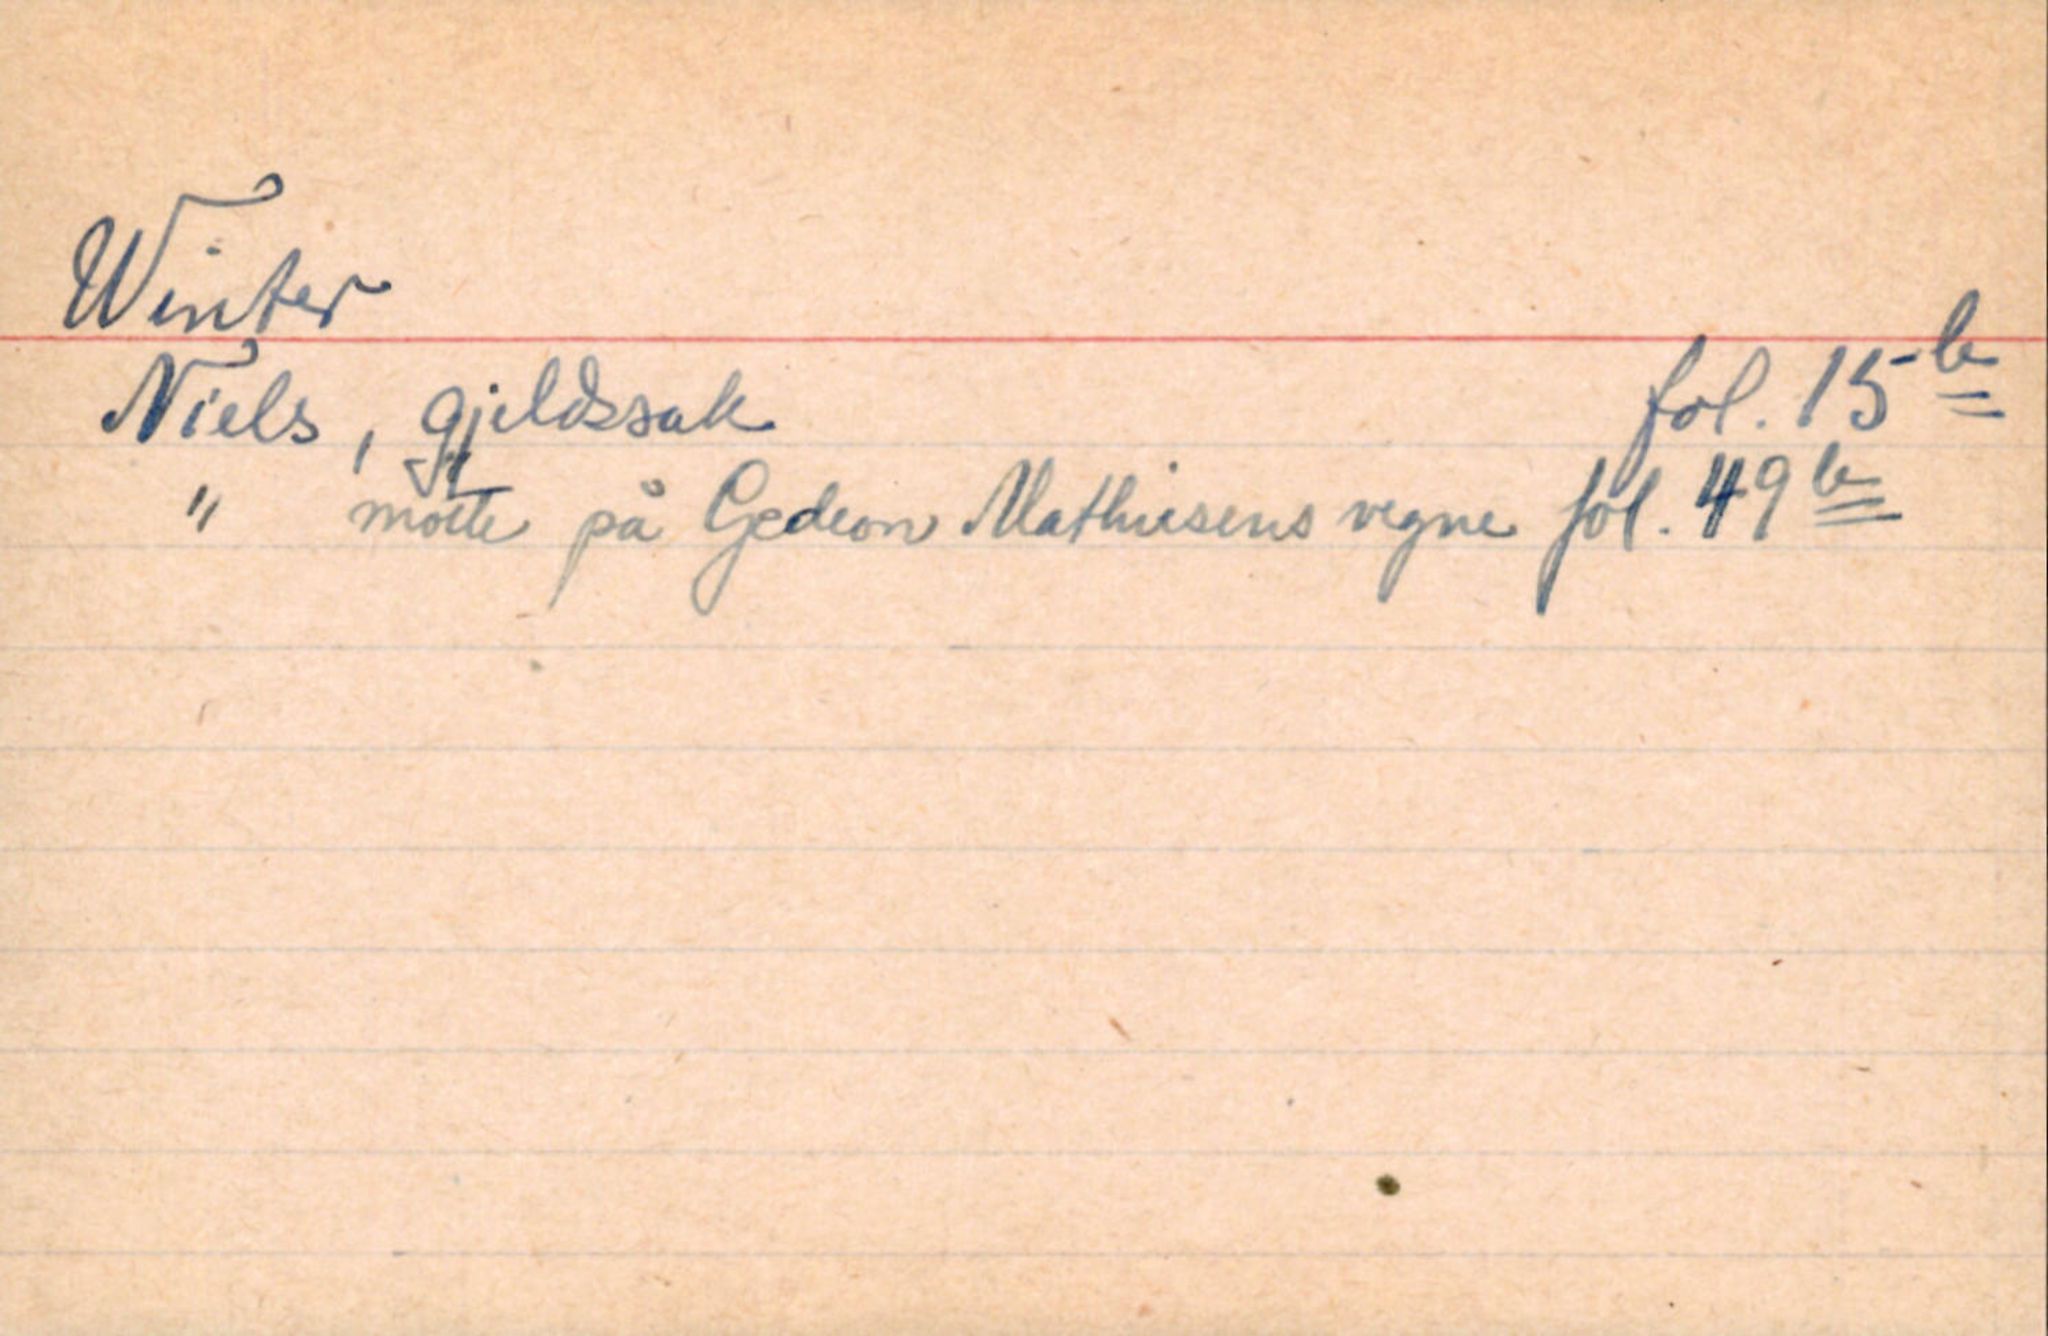 Winter
Niels, gjeldssak fol. 15b
" møtte på Gedeon Mathiesens vegne fol. 49b